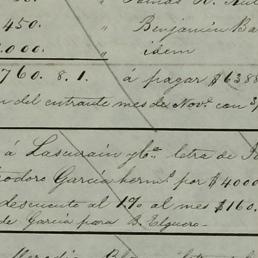 450. " Benjamin Ba
.000. " idem
760. 8. 1. á pagar $6388
n del entrante mes de Nov.e con 3/
á Lascurain y C.a letra de
odoro García herm.o por $4000
descuento al 1% al mes $160.
de García para B. Elguero.